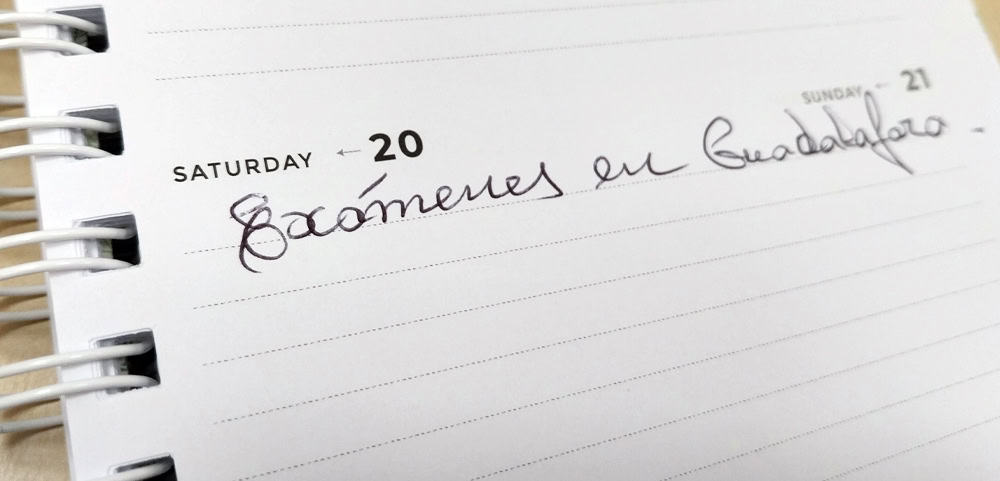 SATURDAY ← 20
SUNDAY ← 21
Exámenes en Guadalajara.